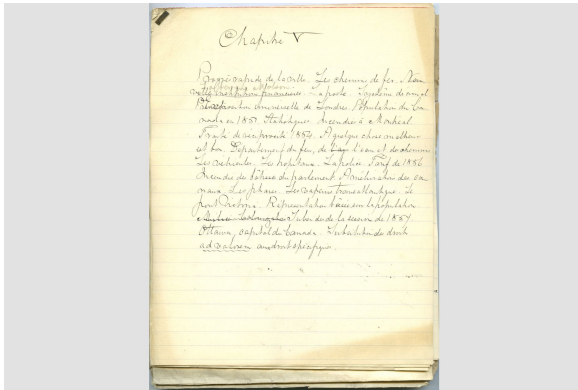 Chapitre V
Progrès rapide de la ville. Les chemins de fer. Nou-
velles institutions financières. La poste. Système décimal
Exposition Universelle de Londres. Population du Ca-
nada en 1851. Statistiques. Incendie à Montréal
Traité de réciprocité 1854. A quelque chose malheur
est bon. Département du feu, de l'eau et des chemins
Les véhicules. Les hôpitaux. La police. Tarif de 1856
Incendie des bâtisses du parlement. Amélioration des ca-
naux. Les phares. Les vapeurs transatlantiques. Le
pont Victoria. Représentation basée sur la population
de la session de 1857
Ottawa, capitale du Canada. Substitution de droits
ad valorem aux droits spécifiques.